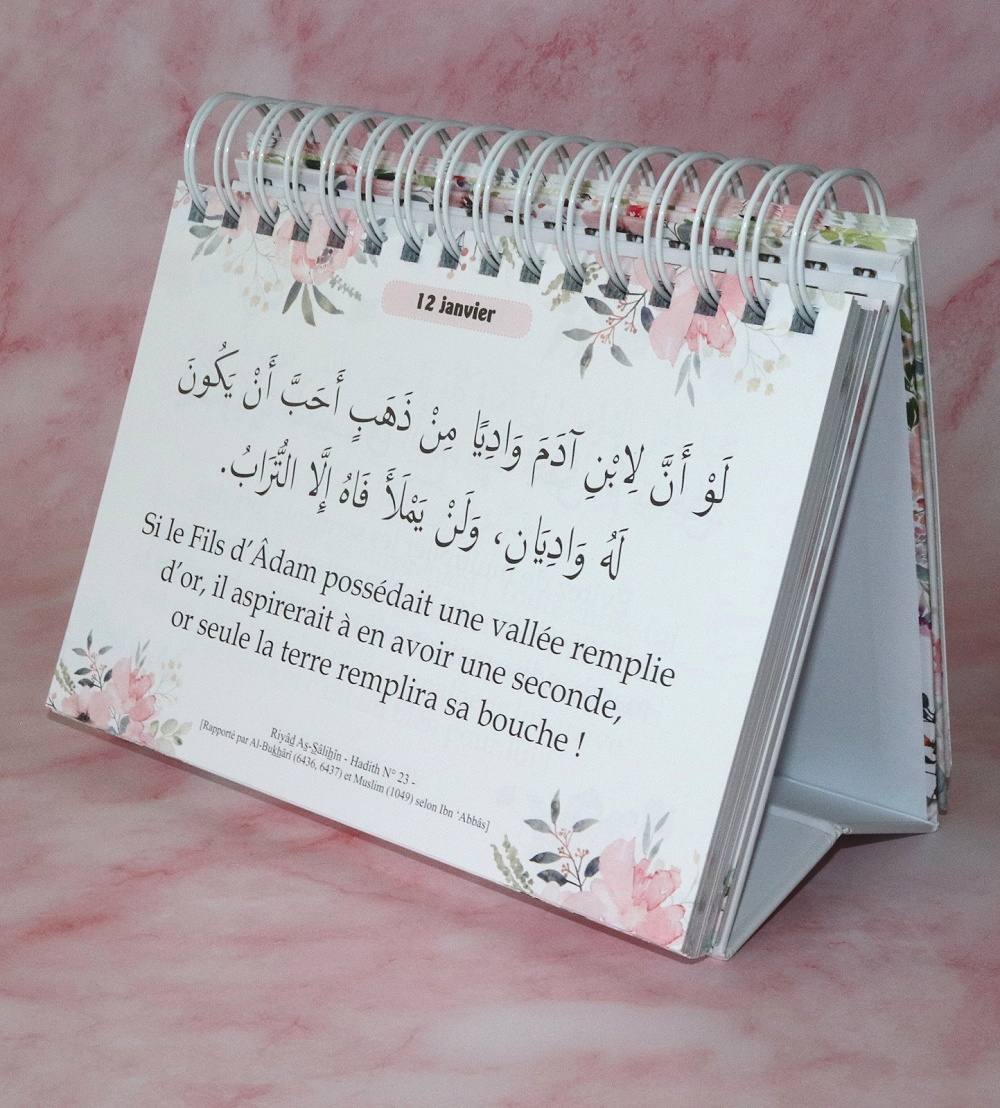 12 janvier
لَوْ أَنَّ لِابْنِ آدَمَ وَادِيًا مِنْ ذَهَبٍ أَحَبَّ أَنْ يَكُونَ
لَهُ وَادِيَانِ، وَلَنْ يَمْلَأَ فَاهُ إِلَّا التُّرَابُ.
Si le Fils d’Âdam possédait une vallée remplie
d’or, il aspirerait à en avoir une seconde,
or seule la terre remplira sa bouche !
Riyâḏ As-Sâlihîn - Hadith N° 23 -
[Rapporté par Al-Bukhârî (6436, 6437) et Muslim (1049) selon Ibn ‘Abbâs]